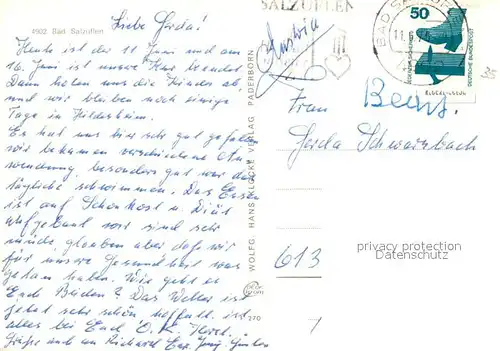 4902 Bad Salzuflen
Liebe Gerda!
Heute ist der 11. Juni und am
16. Juni ist unsere Kur beendet
Dann holen uns die Kinder ab
und wir bleiben noch einige
Tage in Hildesheim.
Es hat uns hier sehr gut gefallen
wir bekamen verschiedene An
wendung, besonders gut war das
tägliche schwimmen. Das Essen
ist auf Schonkost u. Diät
aufgebaut sind sehr
müde, glauben aber daß wir
für unsere Gesundheit was
getan haben. Wie geht es
Euch Beiden? Das Wetter ist
jetzt sehr schön hoffentl. ist
alles bei Euch O.K. Herzl.
Grüße auch an Richard
WOLFG. HANS KLOCKE VERLAG PADERBORN
270
SALZUFLEN
BAD SALZUFLEN
50
DEUTSCHE BUNDESPOST
Austria
Frau
Gerda Schwarzbach
613
privacy protection
Datenschutz